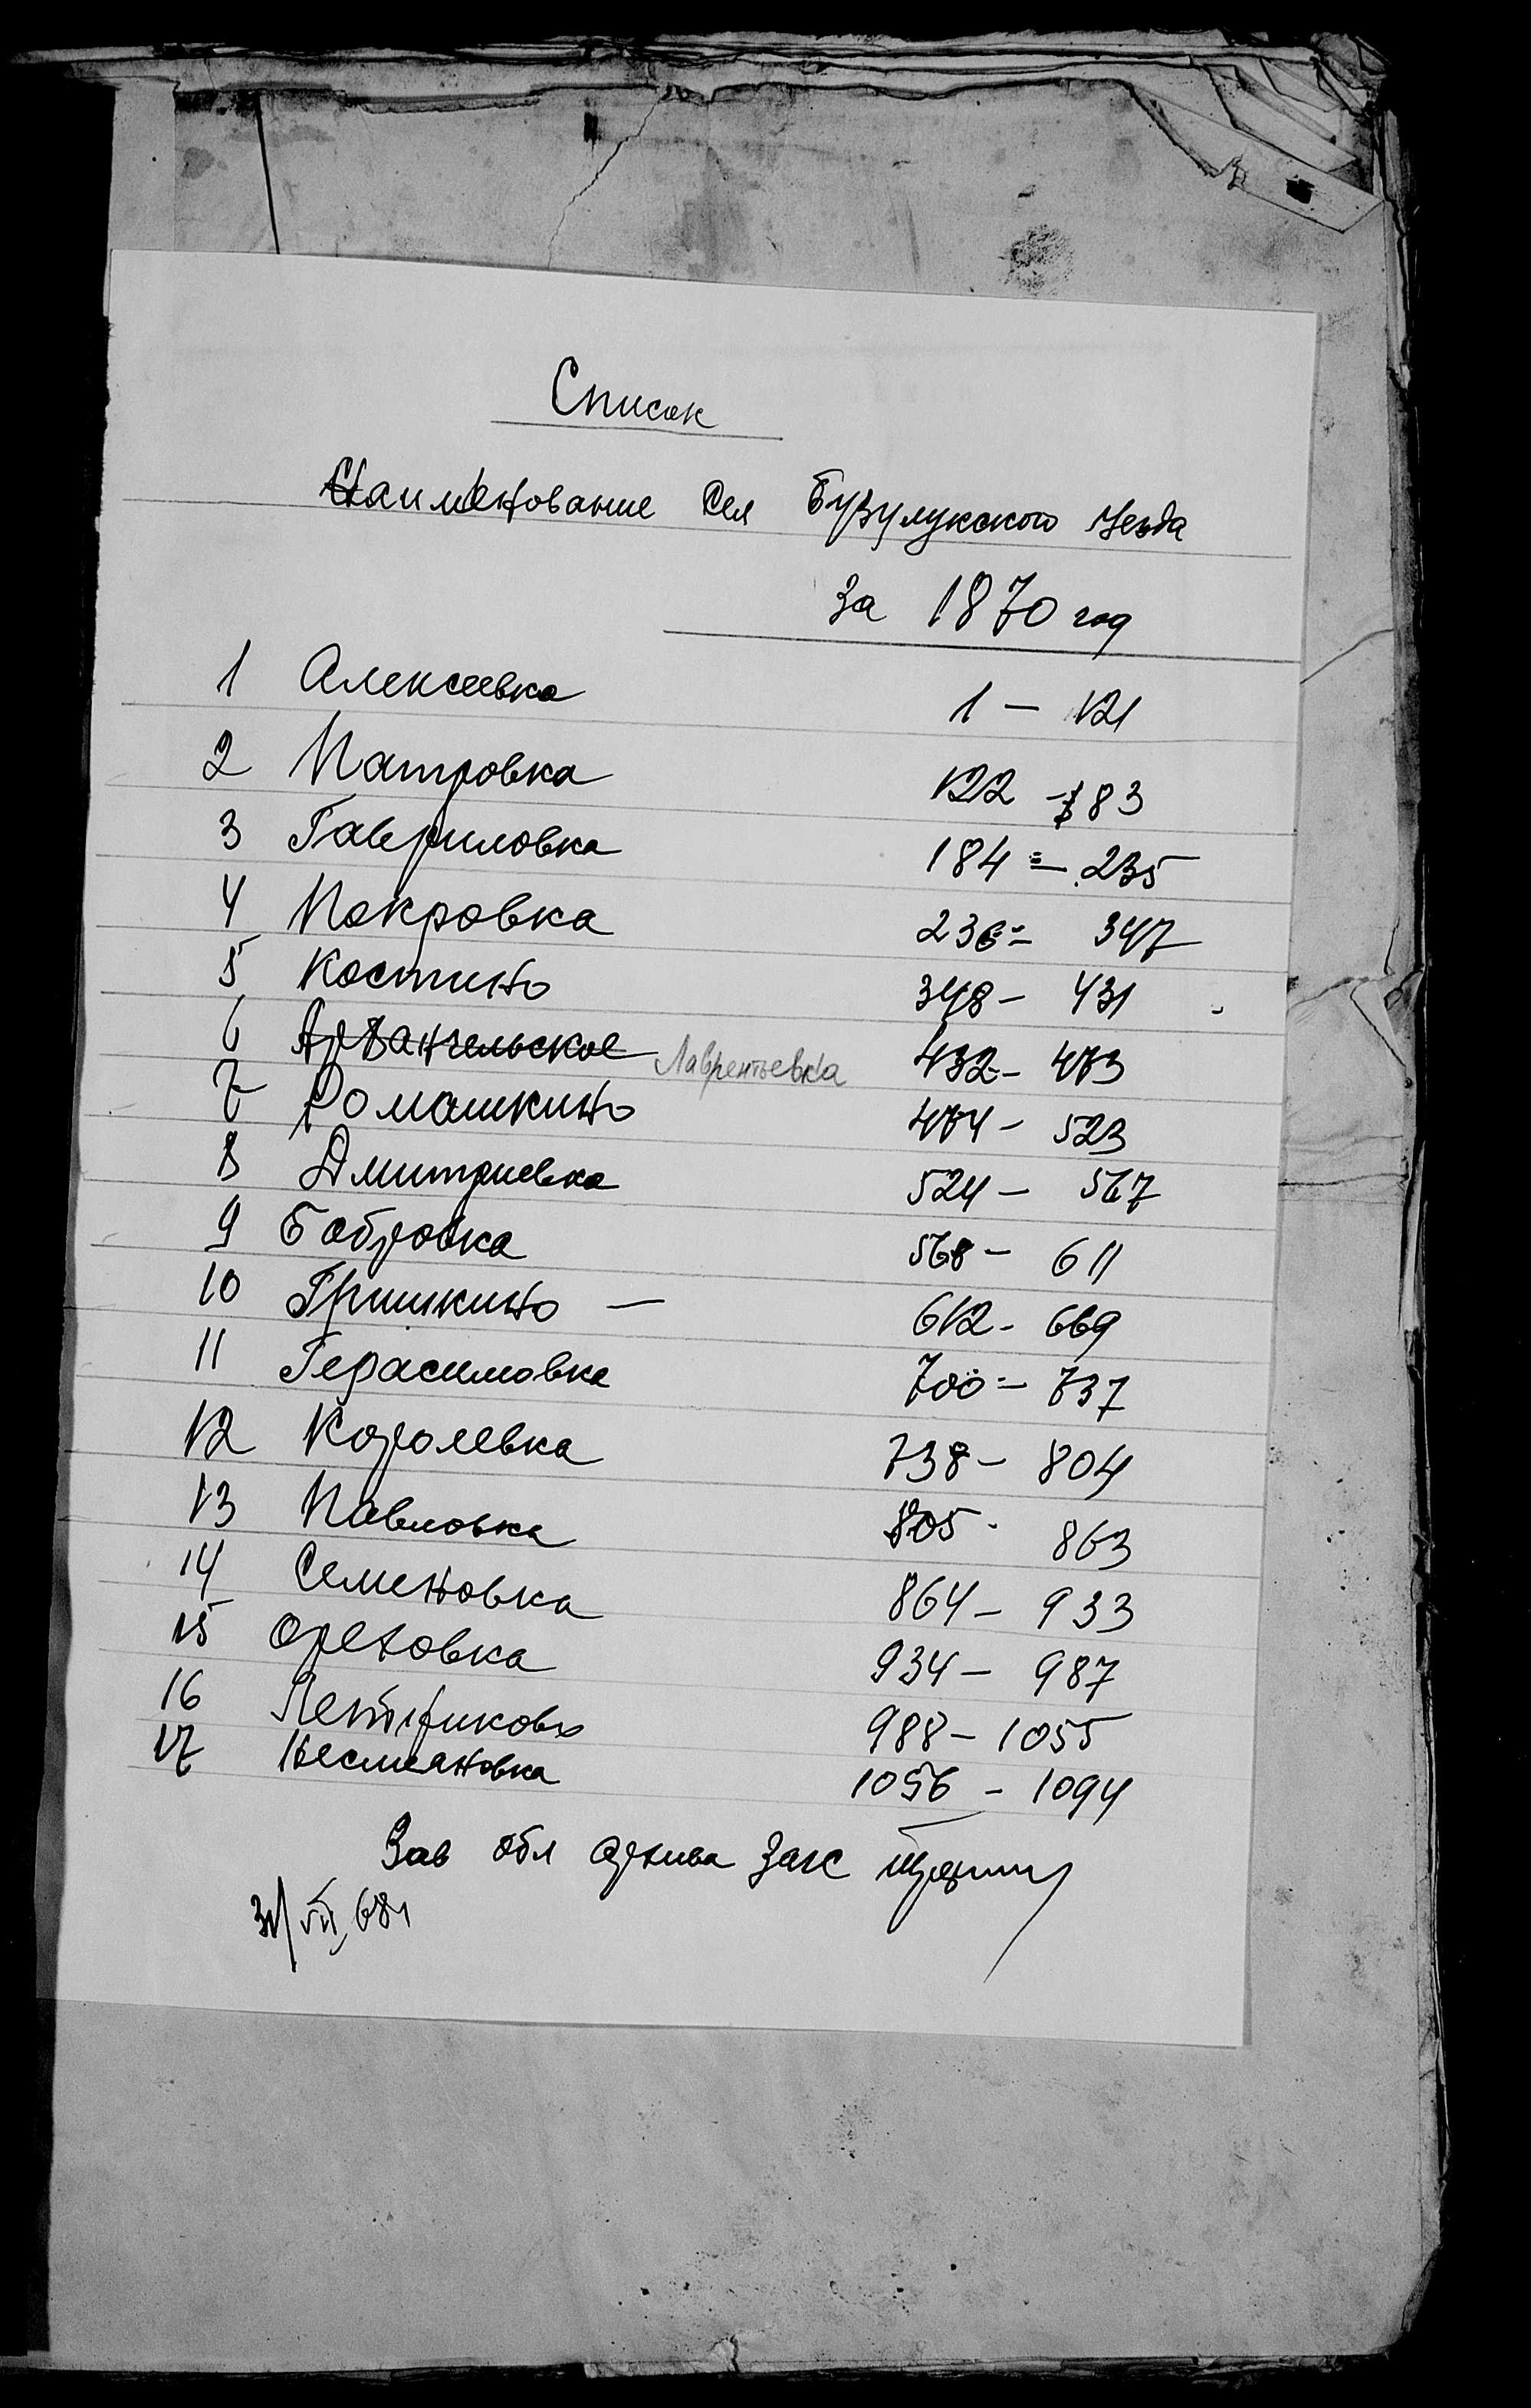 Список
Наименование сел Бузулукского уезда
за 1870 год
1 Алексеевка 1 – 121
2 Патровка 122 – 183
3 Гавриловка 184 – 235
4 Покровка 236 – 347
5 Костино 348 – 431
6 Архангельское Лаврентьевка 432 – 473
7 Ромашкино 474 – 523
8 Дмитриевка 524 – 567
9 Бобровка 568 – 611
10 Гришкино – 612 - 669
11 Герасимовка 700 – 737
12 Королевка 738 – 804
13 Павловка 805 - 863
14 Семеновка 864 – 933
15 Ореховка 934 – 987
16 988 – 1055
17 Несмеяновка 1056 – 1094
Зав обл архива Загс
31/VII 68